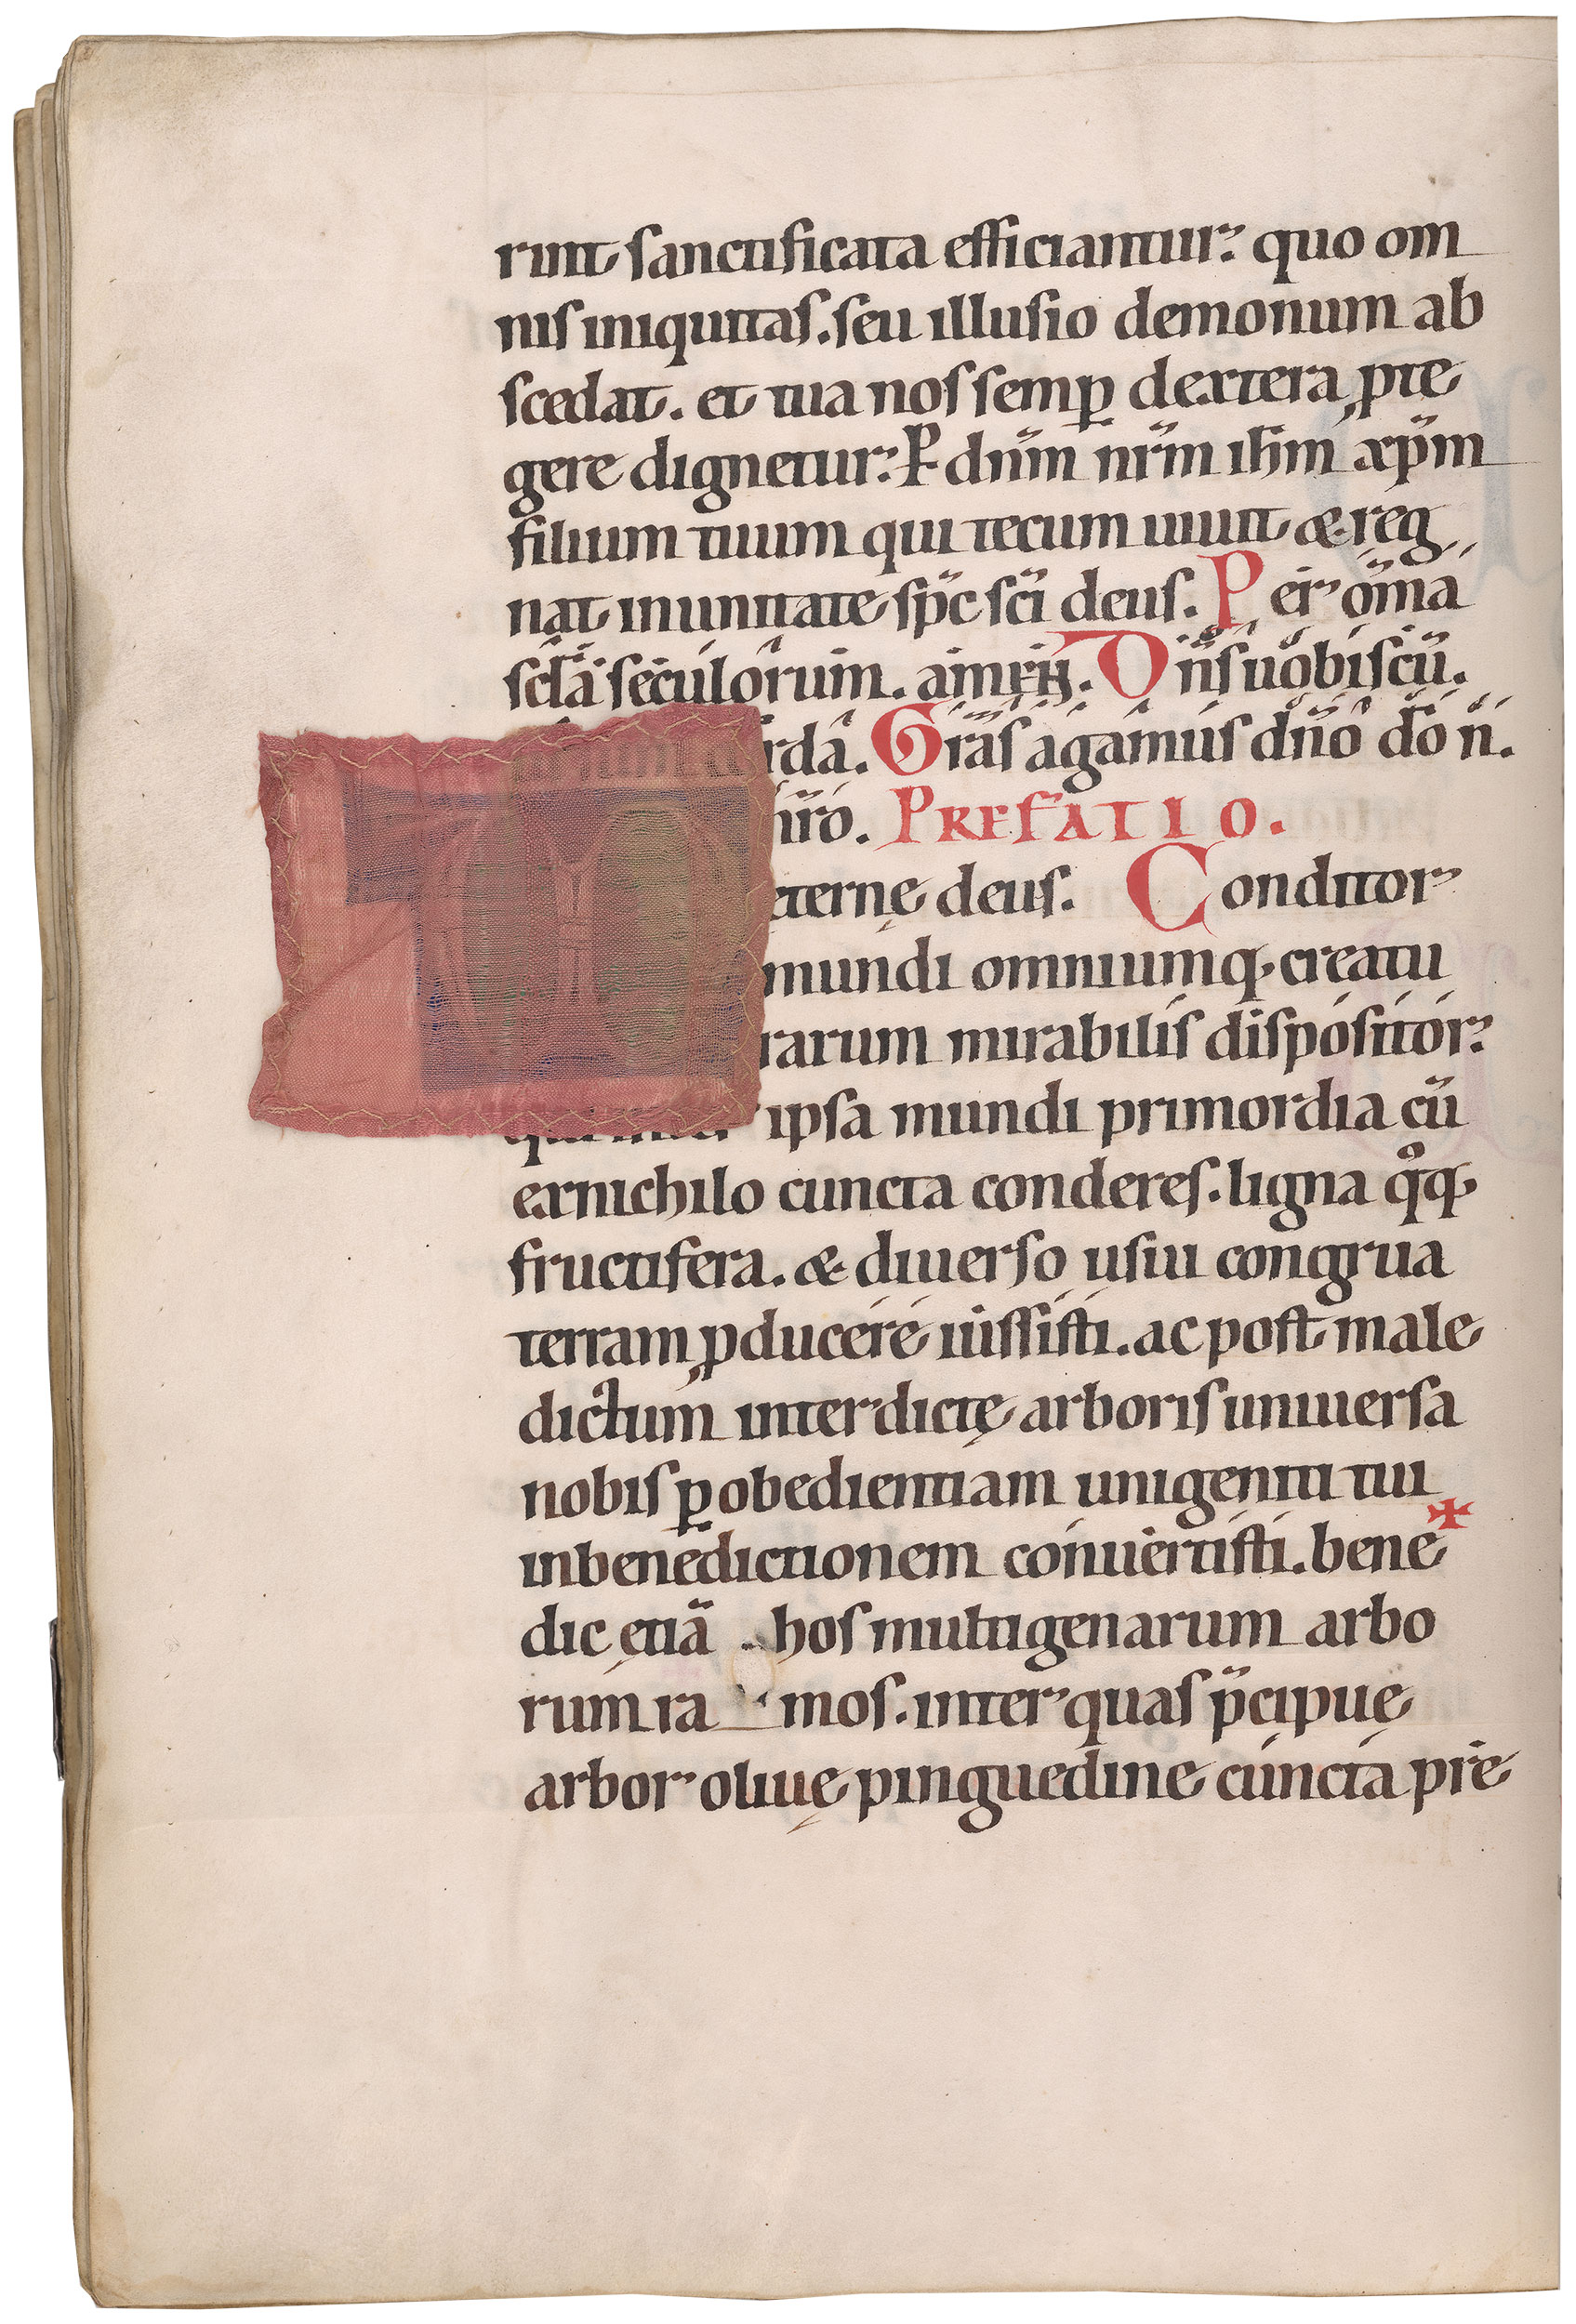 rint sanctificata efficiantur: quo om
nis iniquitas. seu illusio demonum ab
scedat. et tua nos semꝑ dextera ꝓte
gere dignetur: P dn̄m nr̄m ih̄m xp̄m
filium tuum qui tecum uiuit & reg
nat inunitate sp̄c sc̄i deus. Per om̄a
scl̄a seculorum. amen. Dn̄s uobiscū.
Gras̄ agamus dn̄o d̄o n̄.
nr̄o. PREFATIO.
eternę deus. Conditor
mundi omniumq; creatu
rarum mirabilis dispositor:
ipsa mundi primordia cū
exnichilo cuncta conderes. ligna qͦq;
fructifera. & diuerso usui congrua
terram ꝓducere iussisti. ac post male
dictum interdictę arboris uniuersa
nobis ꝑ obedientiam unigeniti tui
inbenedictionem conuertisti. bene ✠
dic etiā hos multigenarum arbo
rum ra mos. inter quas p̄cipuę
arbor oliuę pinguedine cuncta pre